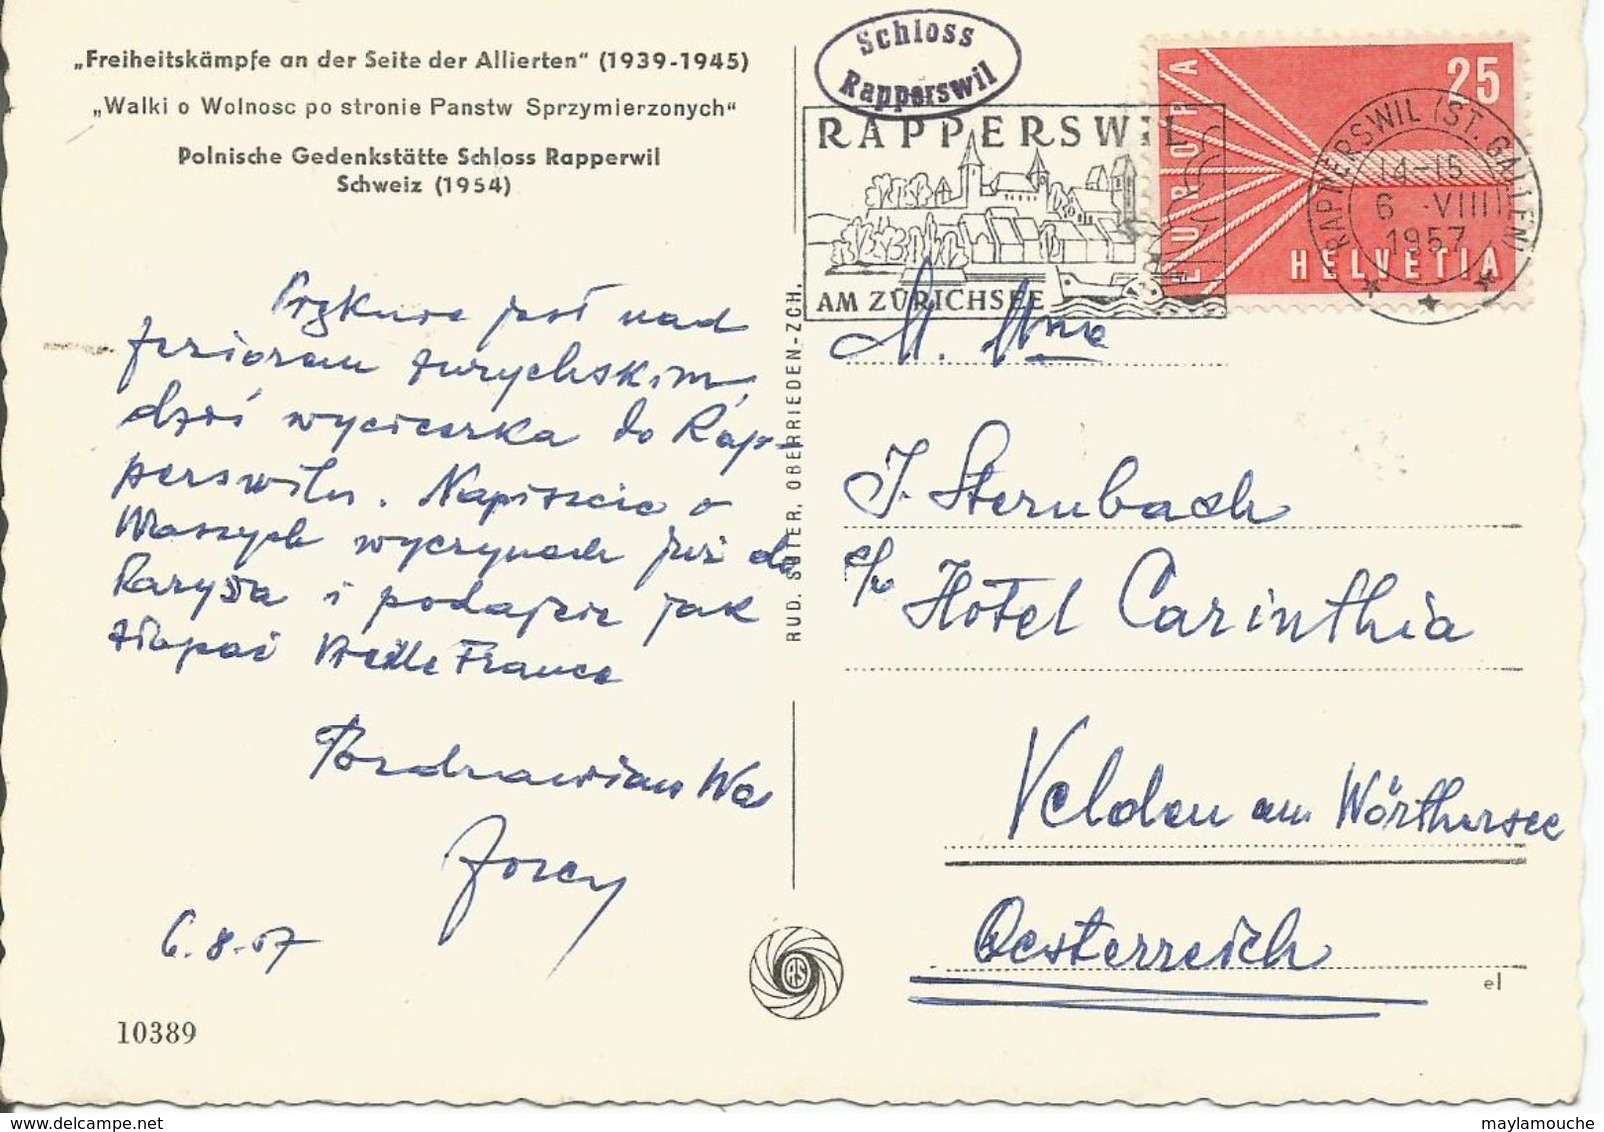 „Freiheitskämpfe an der Seite der Allierten“ (1939-1945)
„Walki o Wolnosc po stronie Panstw Sprzymierzonych“
Polnische Gedenkstätte Schloss Rapperwil
Schweiz (1954)
Schloss
Rapperswil
RAPPERSWIL
AM ZÜRICHSEE
EUROPA
25
HELVETIA
RAPPERSWIL (ST. GALLEN)
14-15
6.-VIII
1957
jest nad
jeziorem zurychskim,
dziś wycieczka do Rap-
perswilu. Napiszcie o
Waszych wyczynach już do
Paryża i podajcie jak
złapać Vieille France
Pozdrawiam Was
Jerzy
6.8.57
10389
RUD. SUTER, OBERRIEDEN-ZCH.
RS
M. Mme
J. Sternbach
c/o Hôtel Carinthia
Velden am Wörthersee
Oesterreich
el
delcampe.net
maylamouche